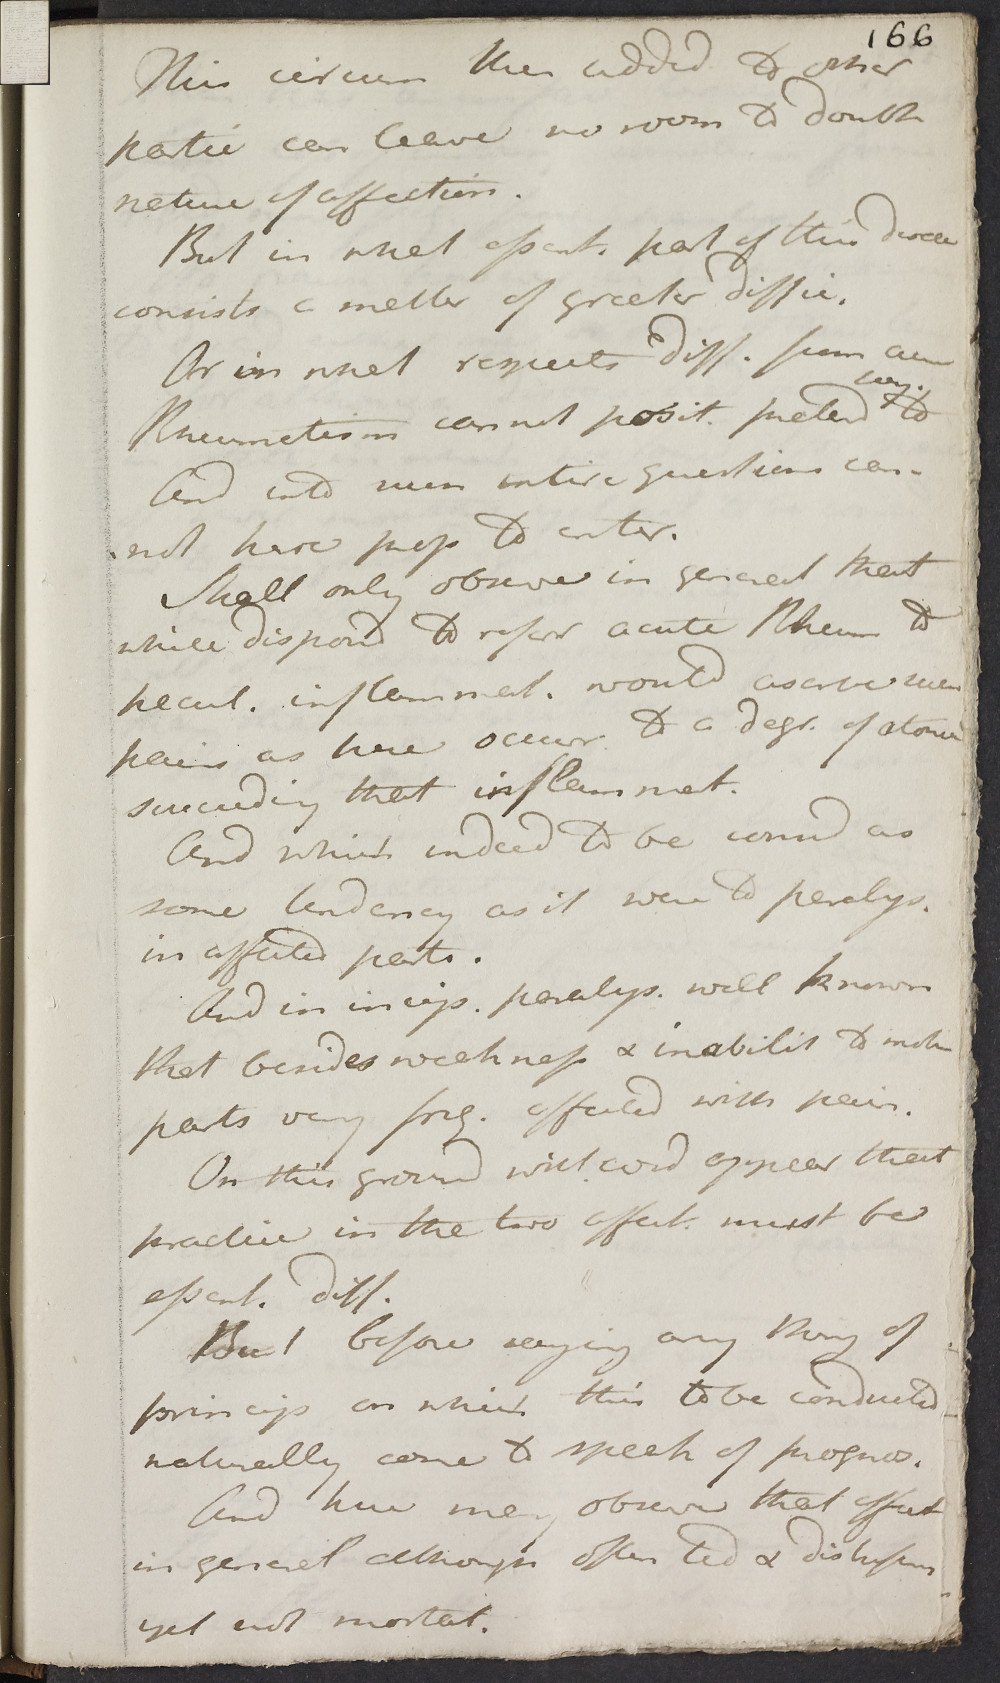 166
This circum then added to other
partic can leave no room to doubt
nature of affection.
But in what essent. part of this disea
consists a matter of greater diffic.
Or in what respects diff. from acu
say.
Rheumatism cannot posit. pretend to
And into such intire questions can-
not here prop to enter.
Shall only observe in general that
while disposd to refer acute Rheum to
pecul. inflammat. would ascribe such
pains as here occur to a degr. of atonic
succeeding that inflammat.
And which indeed to be consid as
some tendency as it were to paralys.
in affected parts.
And in incip. paralys. well known
that besides weakness & inabilit to motion
parts very freq. affected with pain.
On this ground will accord appear that
practice in the two affect. must be
essent. diff.
But before saying any thing of
princip on which this to be conducted
naturally come to speak of prognos.
And here may observe that affect
in general although often ted & distressin
yet not mortal.